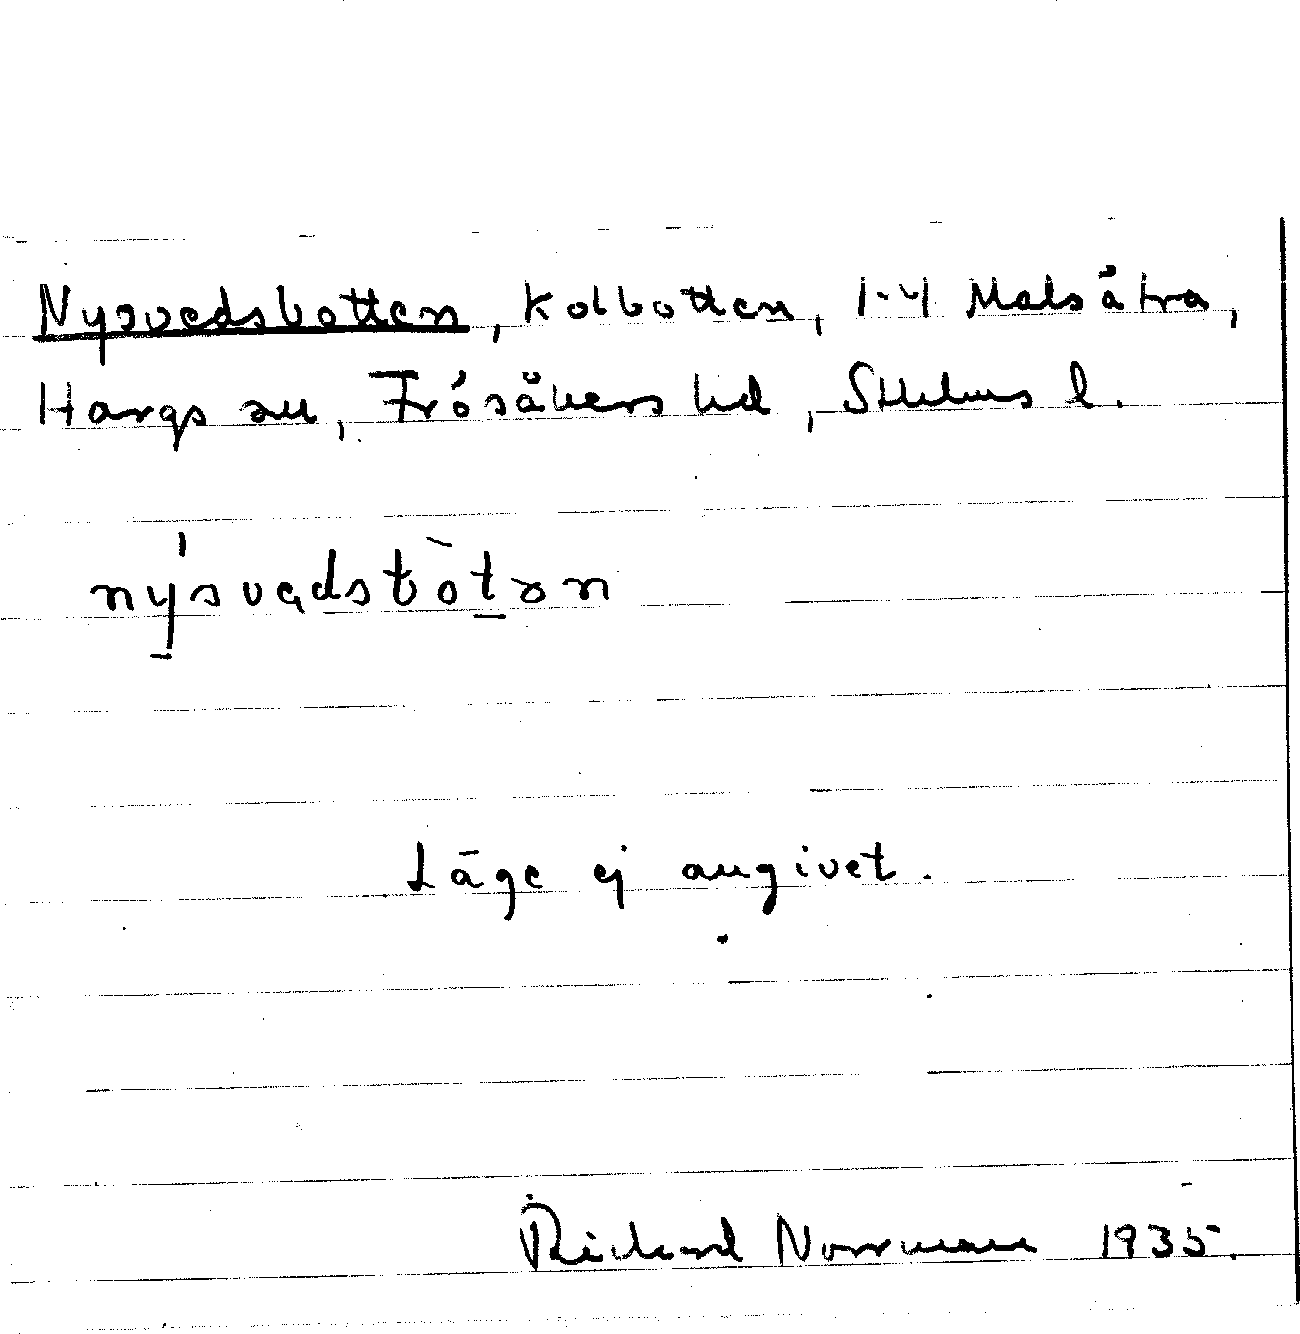 Nysvedsbotten, kolbotten, 1-4 Malsätra,
Hargs sn, Frösåkers hd, Sthlms l.
nysvedsbotən
Läge ej angivet.
Rickard Norrman 1935.